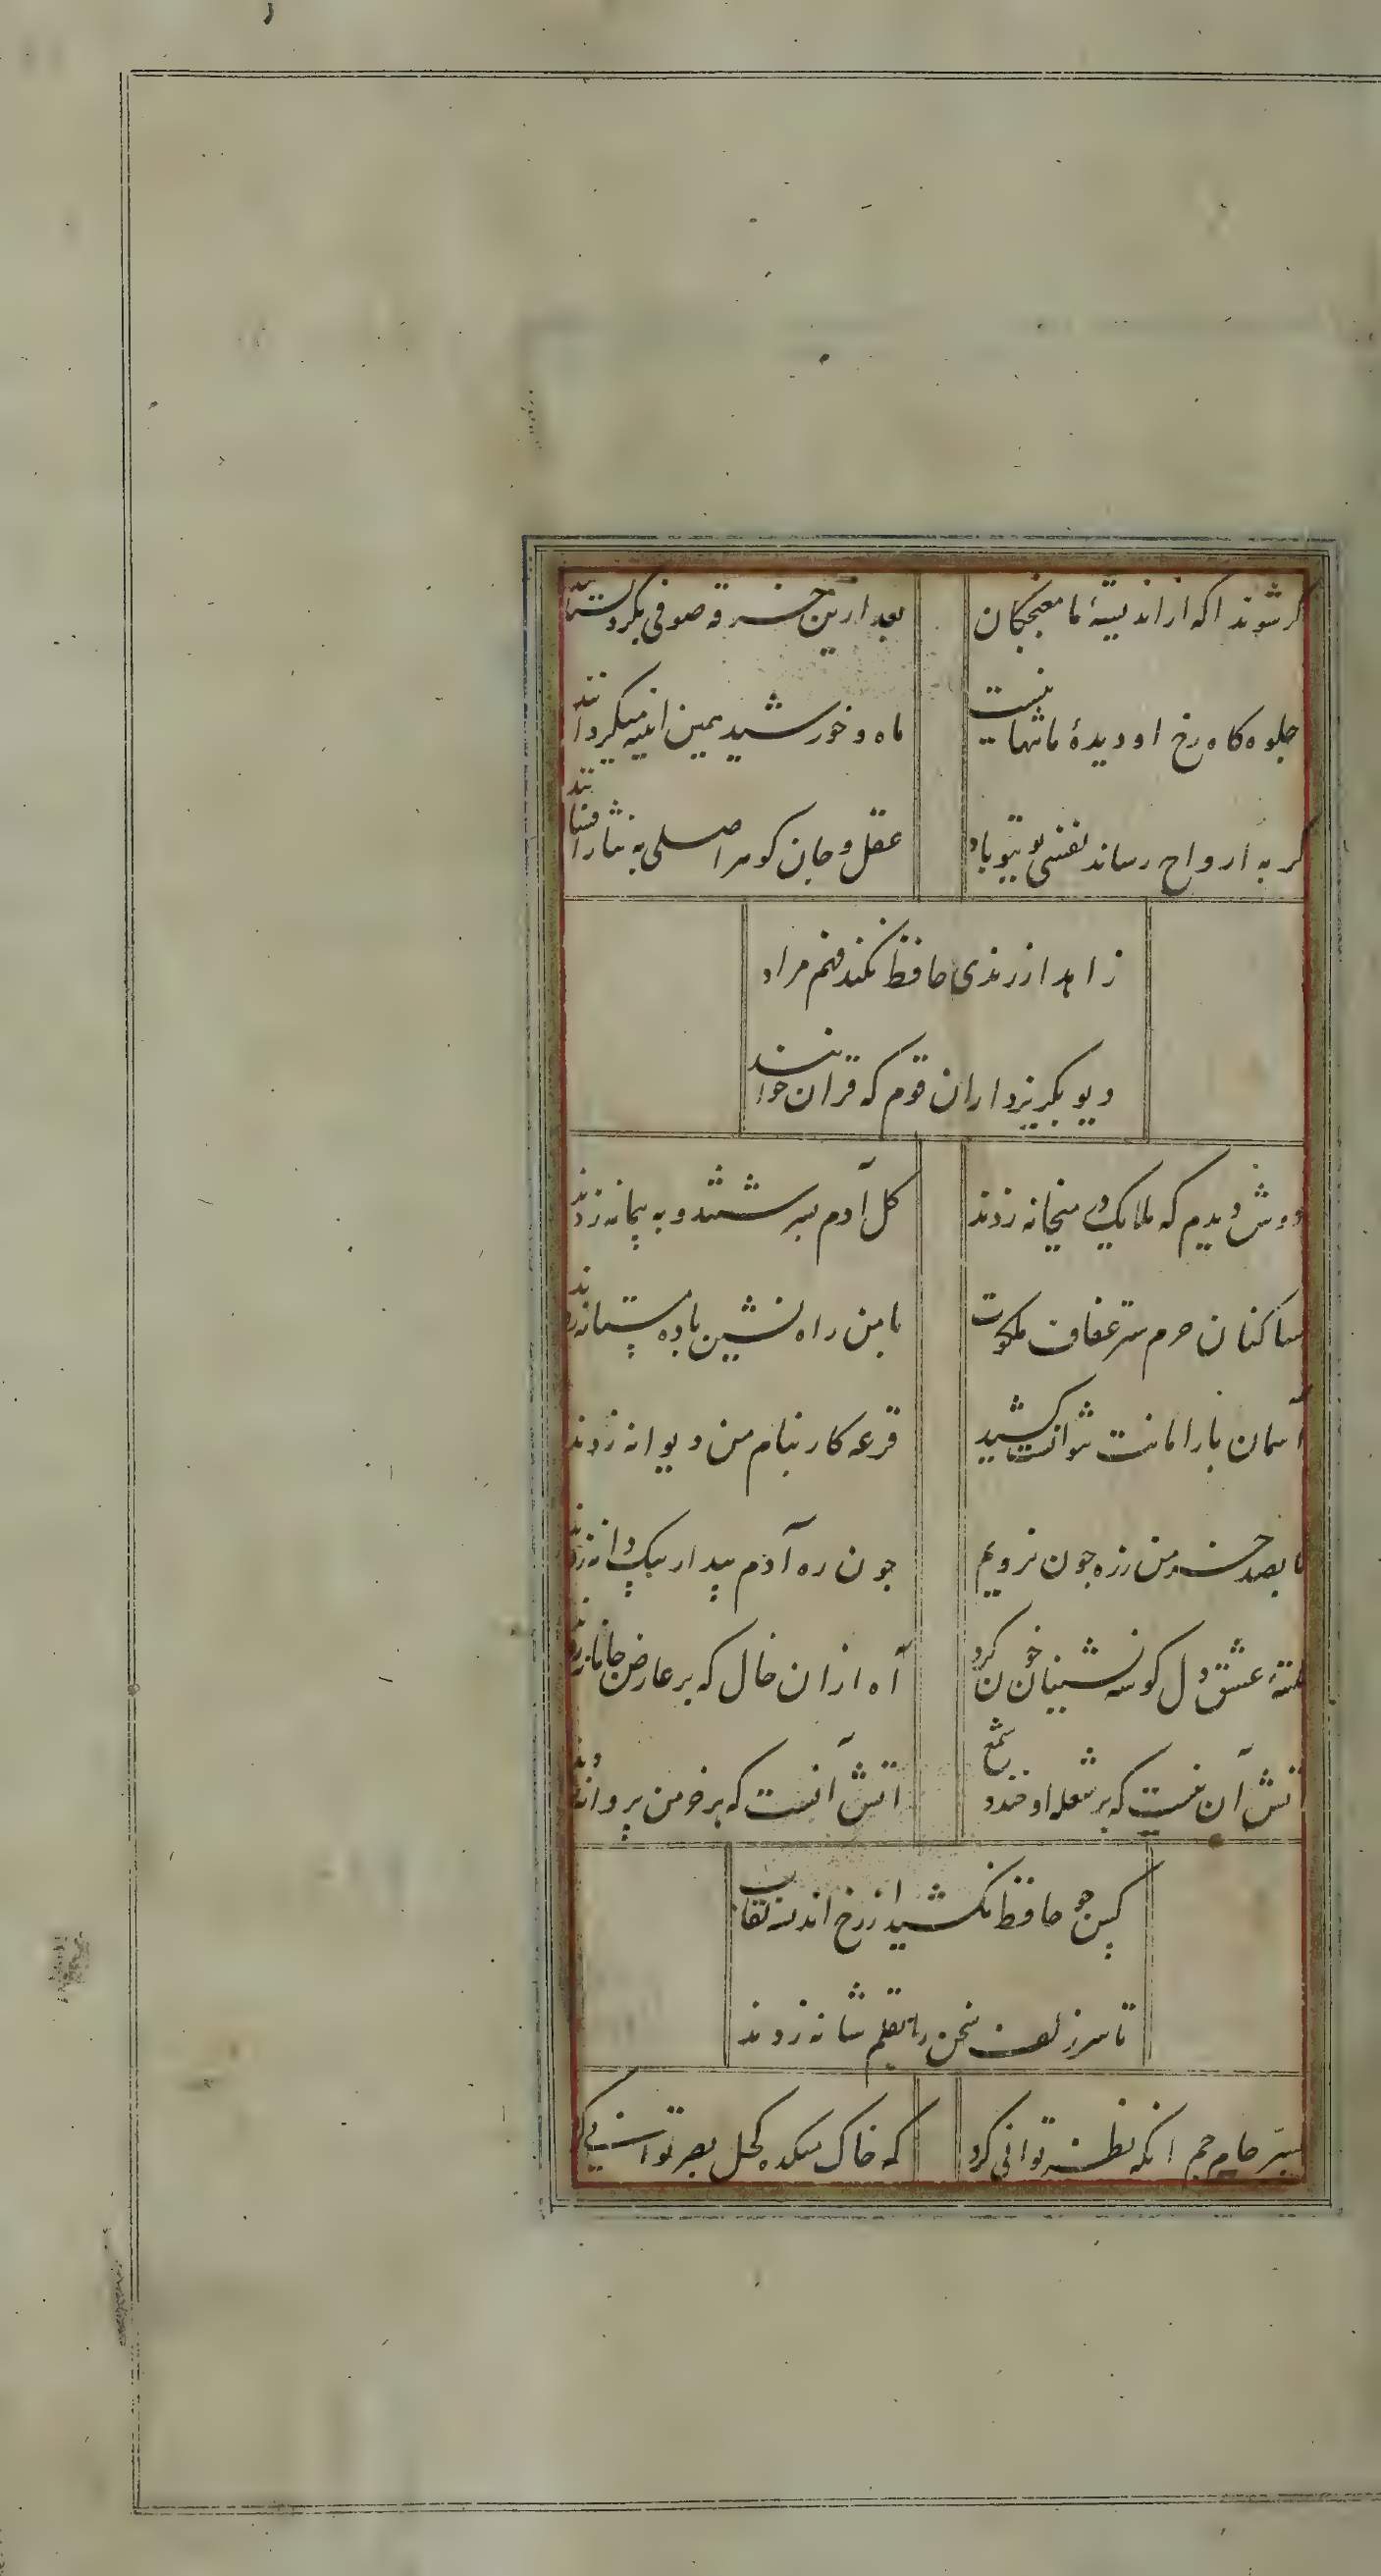 گر شوند اکه از اندیشهٔ ما مغبچکان بعد ازین خرقه صوفی بکرو نستانند
جلوه کاه رخ او دیدهٔ ما تنها نیست ماه و خورشید همین اینه میکردانند
کر به ارواح رساند نفسی بوتیو باد عقل و جان کوهر اصلی به نثار افشانند
زاهد از رندی حافظ نکند فهم مراد
دیو بکریزد ار ان قوم که قران خوانند
دوش دیدم که ملایک در میخانه زدند کل آدم بسرشتند و به پیمانه زدند
ساکنان حرم ستر عفاف ملکوت با من راه نشین باده مستانه زدند
آسمان بار امانت نتوانست کشید قرعه کار بنام من دیوانه زدند
ما بصد خرمن ز ره جون نرویم جون ره آدم بیدار بیک دانه زدند
نقته عشق دل کوشه نشینان خون کرد آه ازان خال که بر عارض جانانه زدند
اتش آن نیست که بر شعله او خندد شمع اتش آنست که بر خرمن پروانه زدند
کس جو حافظ نکشید از رخ اندیشه نقاب
تا سر زلف سخن را بقلم شانه زدند
بسرّ جام جم انکه نظر توانی کرد که خاک میکده کحل بصر توانی کرد